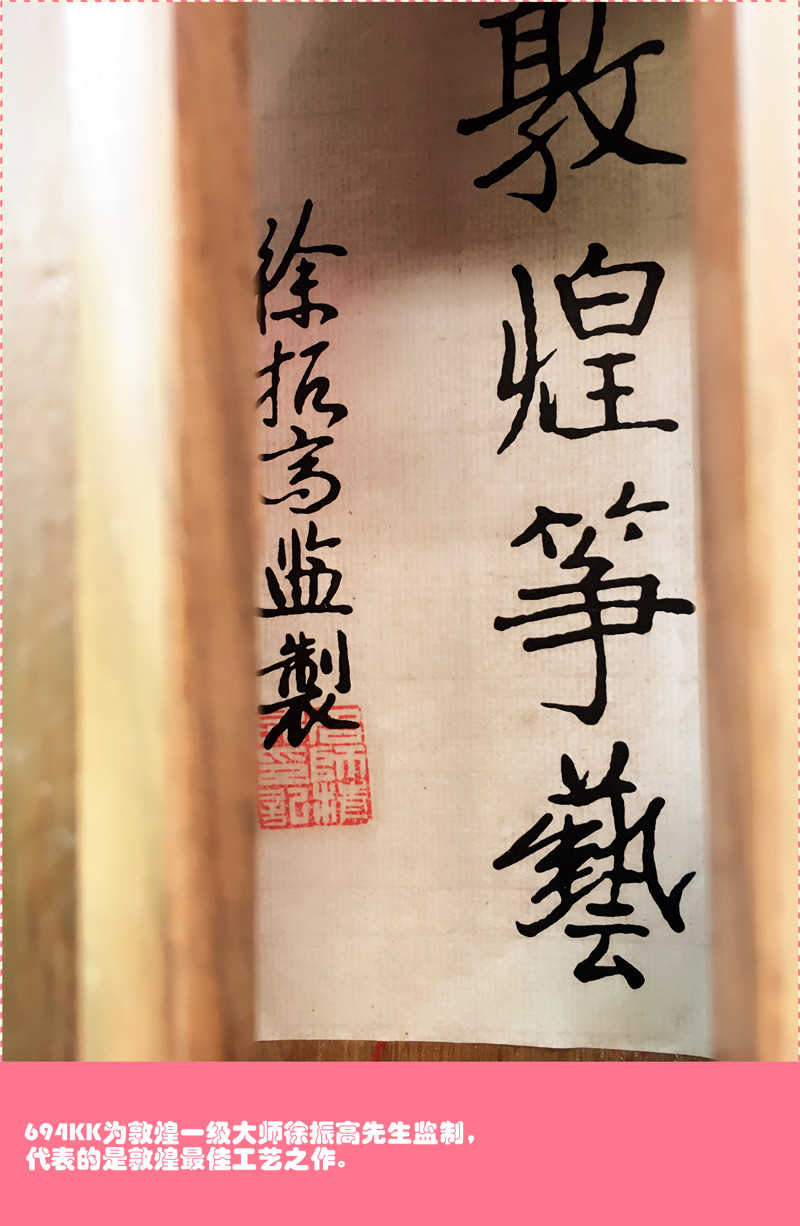 敦煌筝藝
徐振高监製
694KK为敦煌一级大师徐振高先生监制，
代表的是敦煌最佳工艺之作。